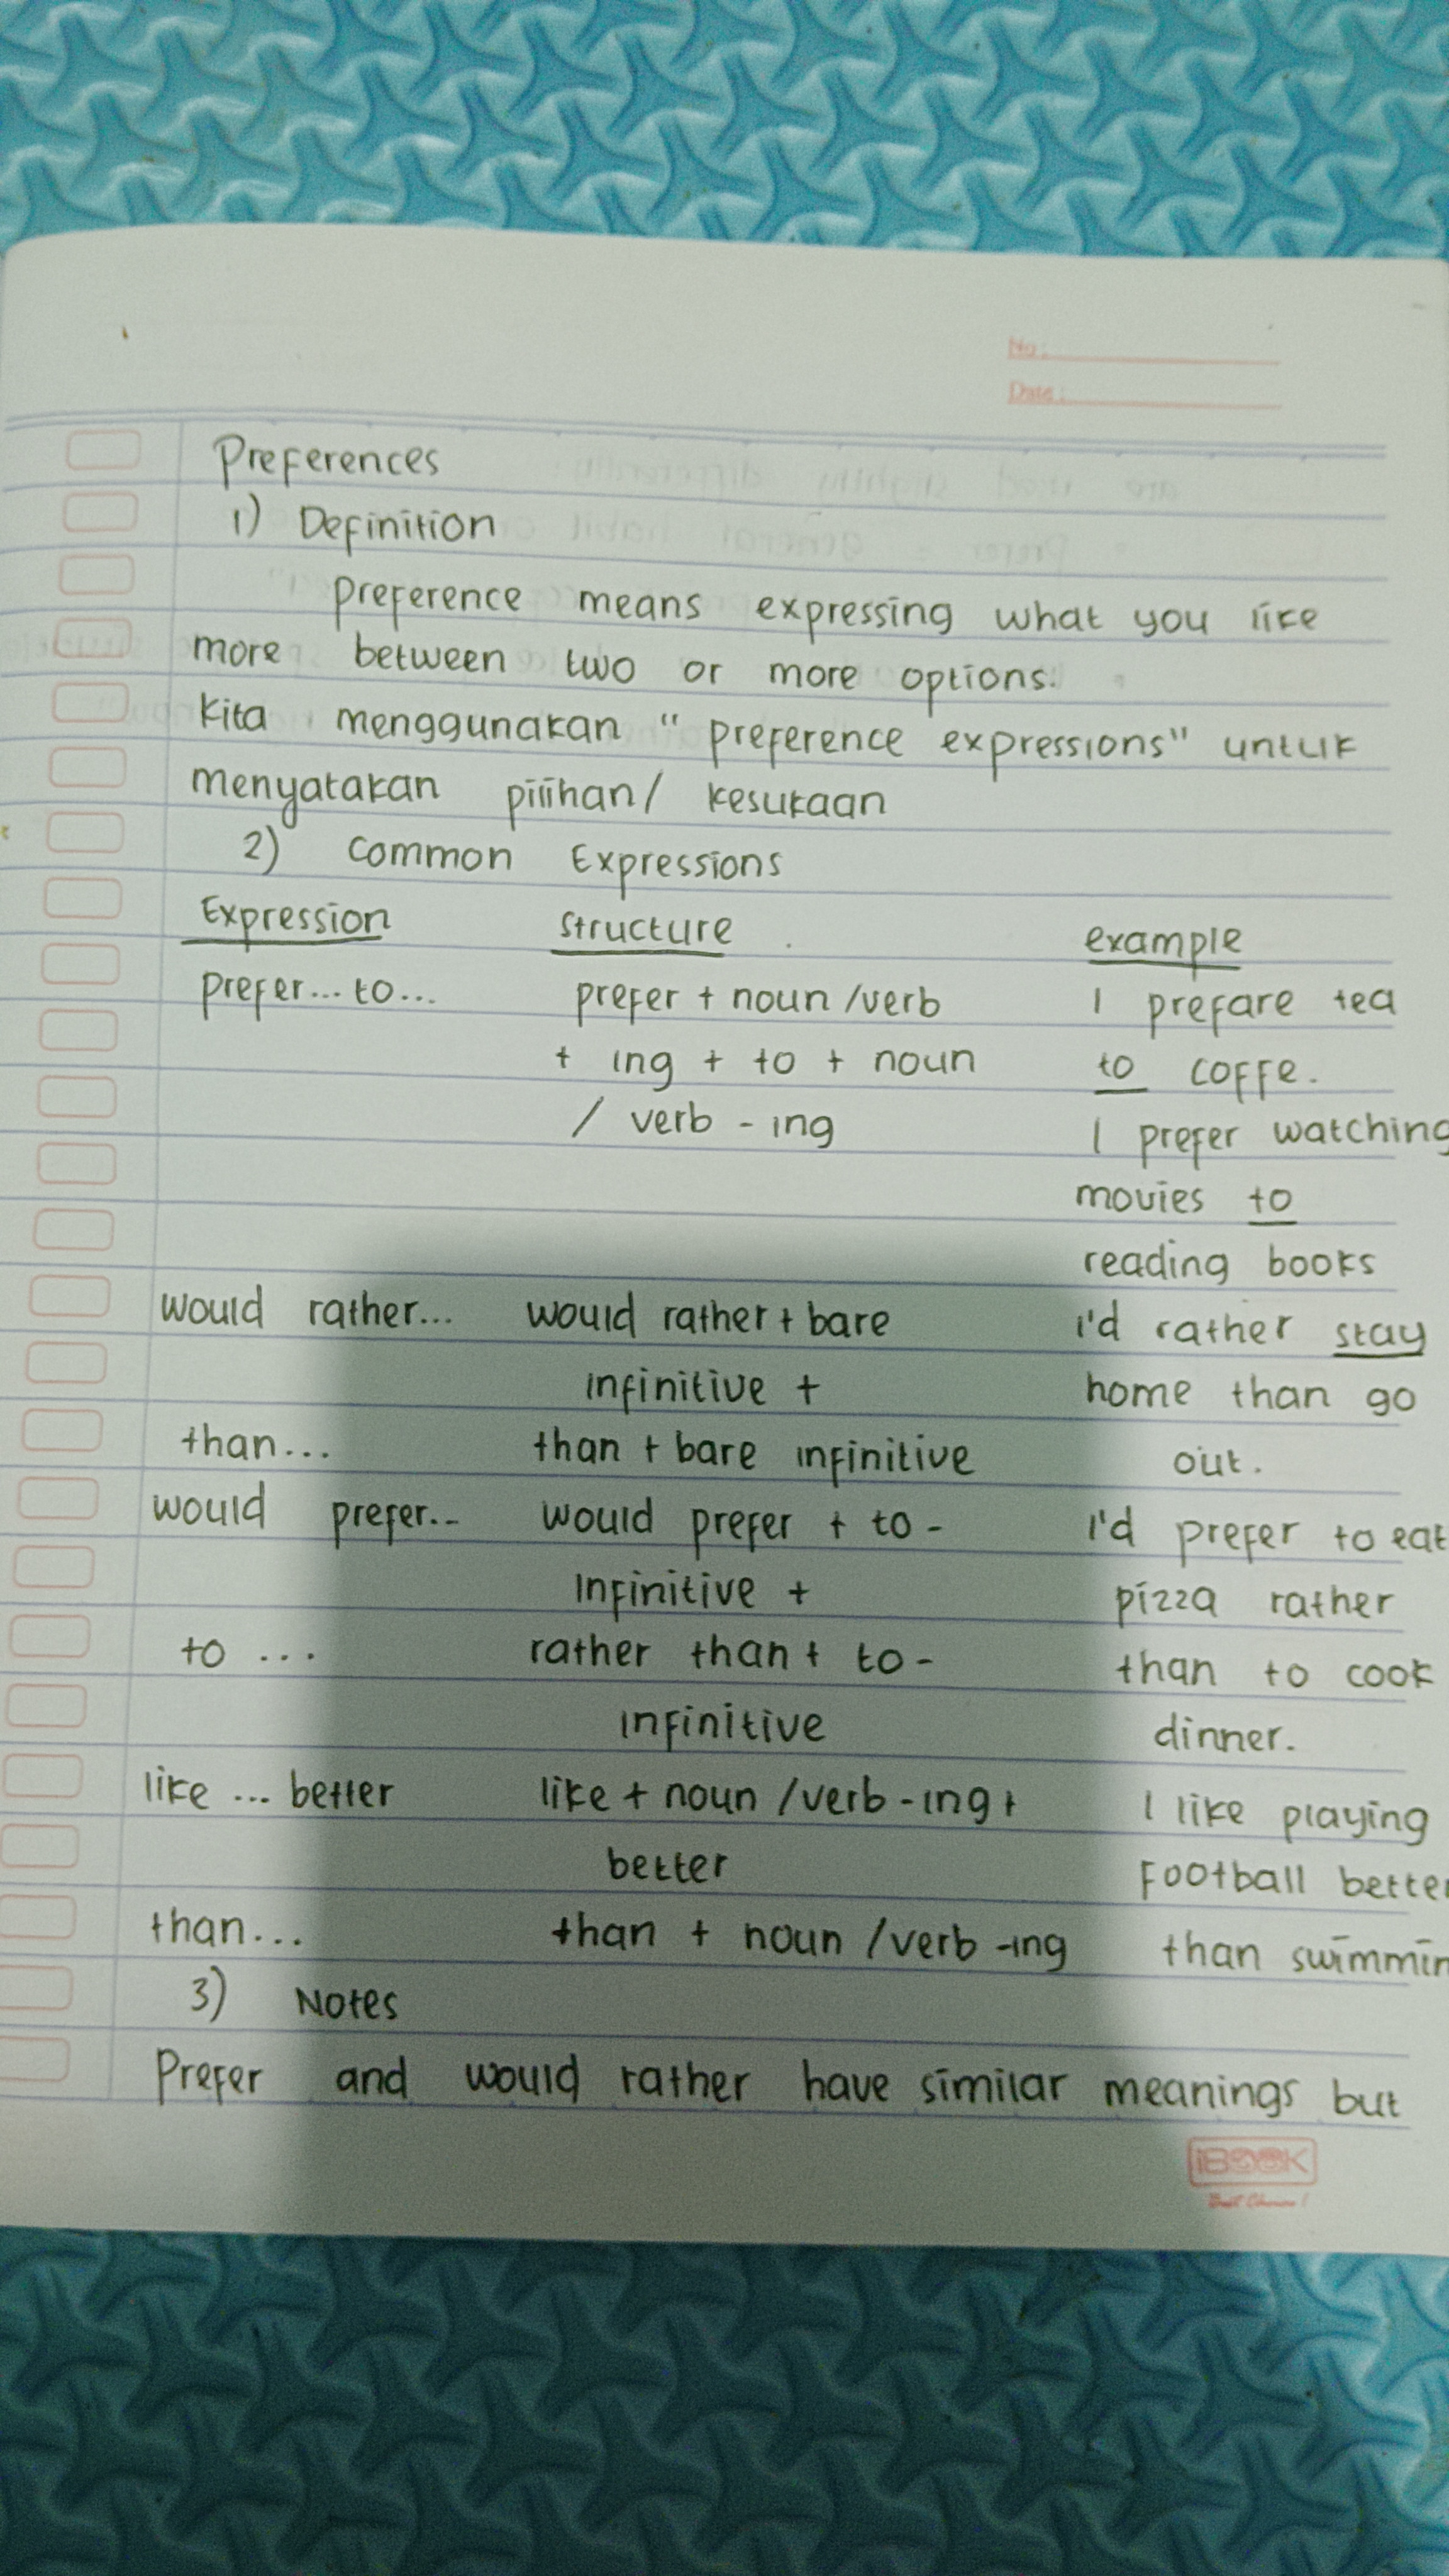 No:
Date:
Preferences
1) Definition
Preference means expressing what you like
more between two or more options.
Kita menggunakan "preference expressions" untuk
menyatakan pilihan/ kesukaan
2) Common Expressions
Expression structure example
prefer...to... prefer + noun /verb I prefare tea
+ ing + to + noun to coffe.
/ verb - ing I prefer watching
movies to
reading books
would rather... would rather + bare I'd rather stay
infinitive + home than go
than... than + bare infinitive out.
would prefer... would prefer + to - I'd prefer to eat
Infinitive + pizza rather
to ... rather than + to - than to cook
infinitive dinner.
like ... better like + noun /verb - ing + I like playing
better Football better
than... than + noun /verb -ing than swimmin
3) Notes
Prefer and would rather have similar meanings but
IBOOK